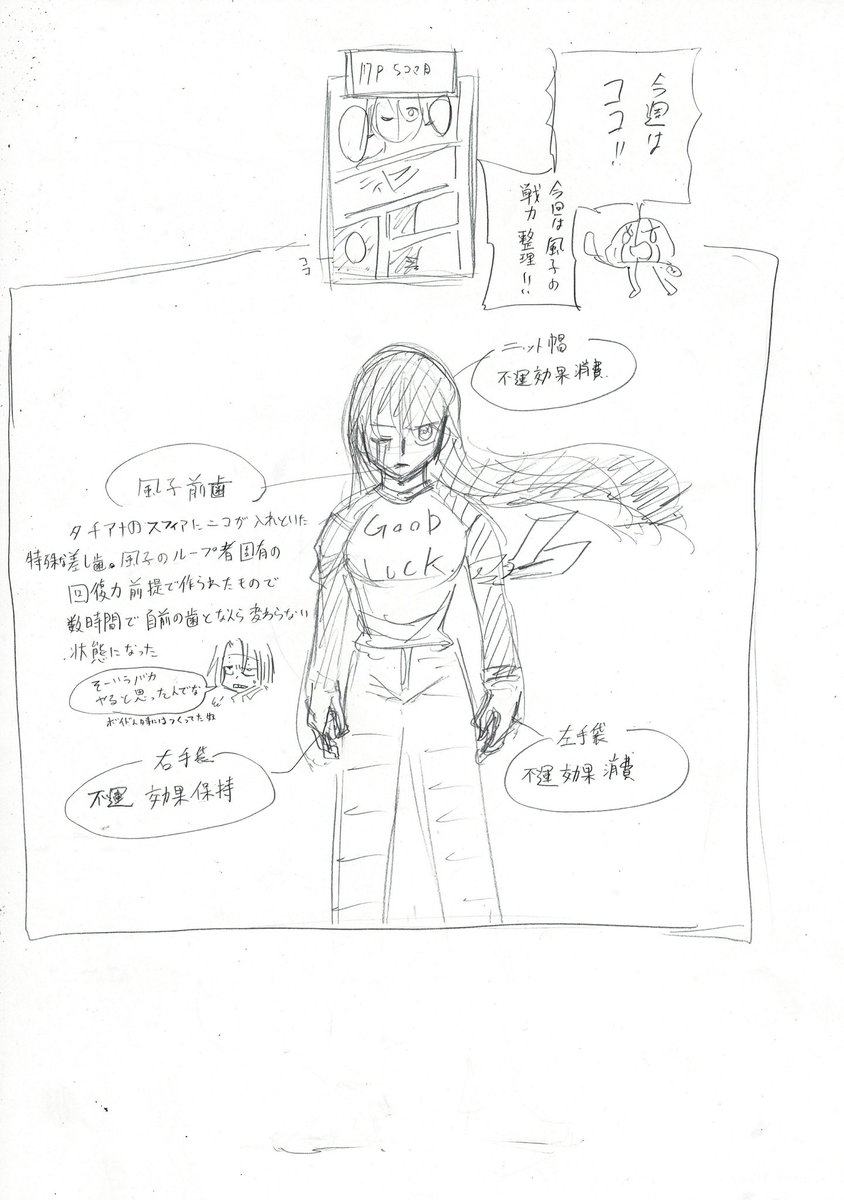 今週は
ココ!!
17P 5コマ目
今回は風子の
戦力整理!!
ココ
ニット帽
不運効果消費
風子前歯
タチアナのスフィアにニコが入れといた
特殊な差し歯。風子のループ者固有の
回復力前提で作られたもので
数時間で自前の歯となんら変わらない
状態になった
GOOD
LUCK
そーいうバカ
やると思ったんでな
右手袋
不運 効果保持
左手袋
不運効果消費